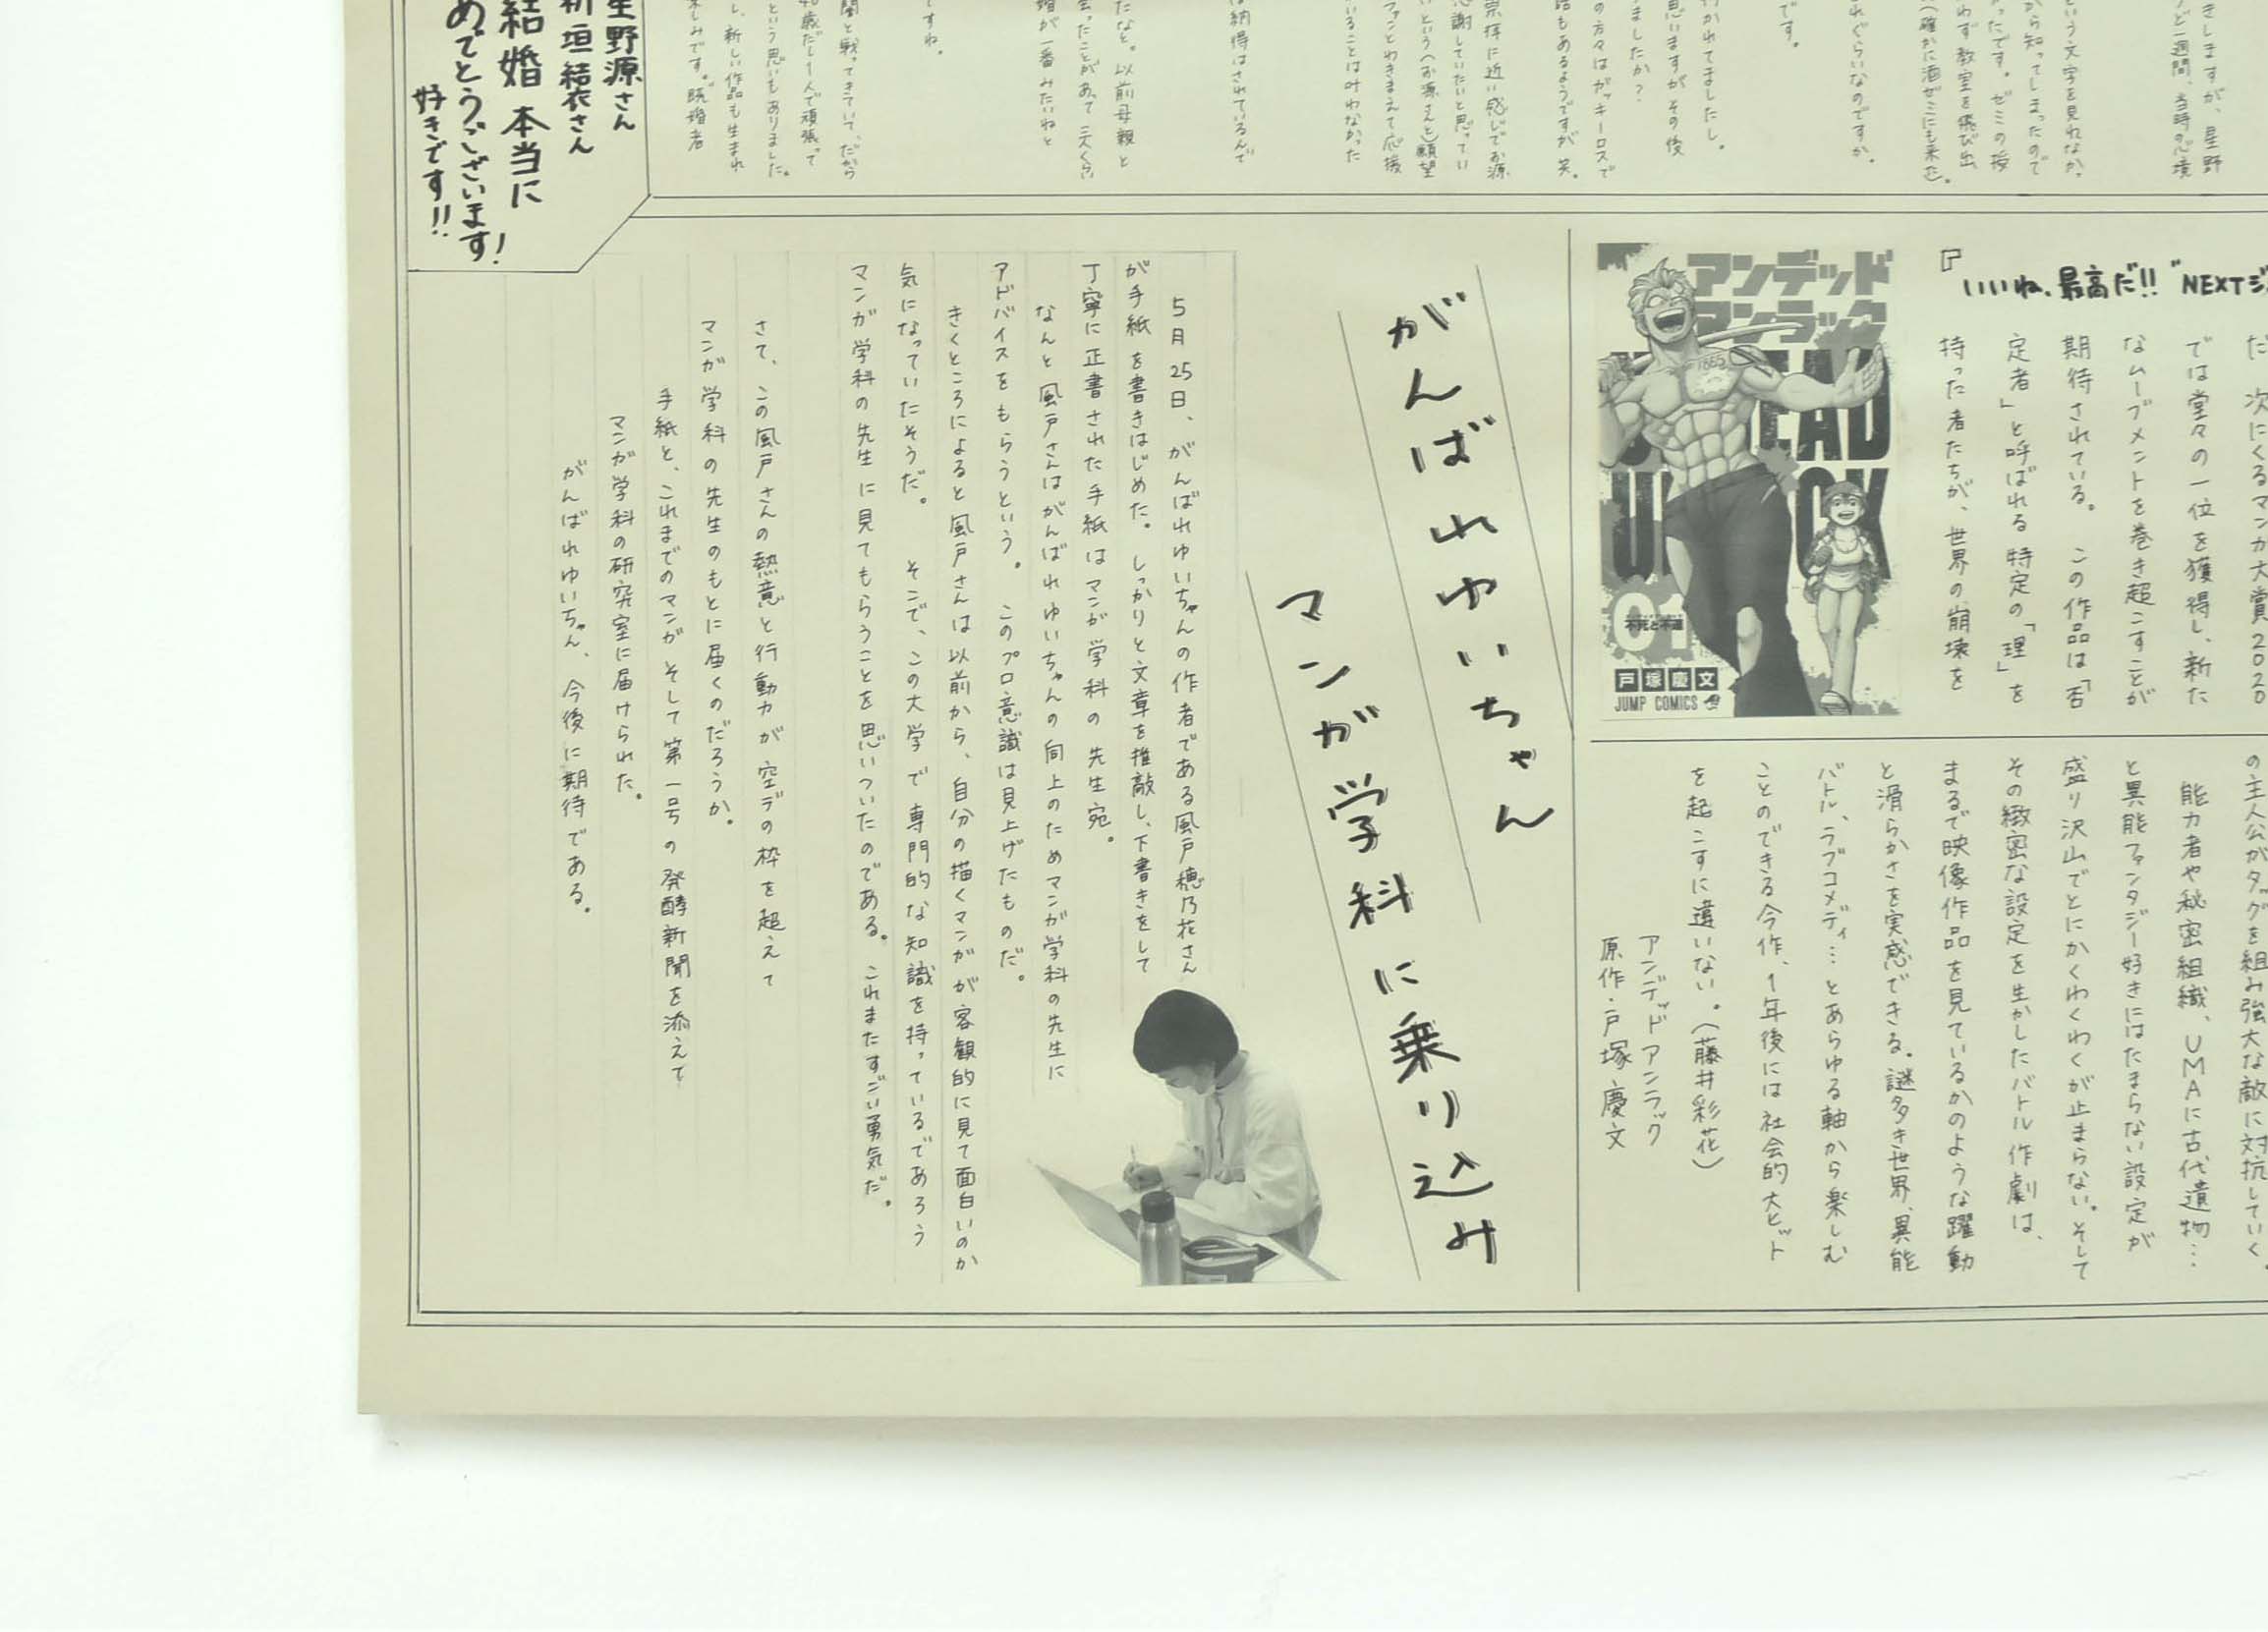 きしますが、星野
ど一週間、当時の心境
という文字を見れなか
から知ってしまったので
ったです。ゼミの授
わず教室を飛び出
(確かに酒ゼミにも来た。
れぐらいなのですか。
です。
行かれてましたし。
思いますがその後
ましたか?
の方々はガッキーロスで
話もあるようですが笑。
崇拝に近い感じでお源
感謝していたいと思ってい
いという(お源さんと)願望
ファンとわきまえて応援
いることは叶わなかった
は納得はされているんで
たなと。以前母親と
会ったことがあって三人くらい
婚が一番みたいねと
ですね。
闘と戦ってきていて、だから
40歳だし1人で頑張って
という思いもありました。
し、新しい作品も生まれ
楽しみです。"既婚者
星野源さん
新垣結衣さん
結婚 本当に
めでとうございます!
好きです!!
『いいね、最高だ!!"NEXTジ
だ 次にくるマンガ大賞2020
では堂々の一位を獲得し、新た
なムーブメントを巻き超こすことが
期待されている。 この作品は「否
定者」と呼ばれる特定の「理」を
持った者たちが、世界の崩壊を
アンデッド
アンラック
UNDEAD
UNLUCK
01
戸塚慶文
JUMP COMICS
の主人公がタッグを組み強大な敵に対抗していく。
能力者や秘密組織、UMAに古代遺物…
と異能ファンタジー好きにはたまらない設定が
盛り沢山でとにかくわくわくが止まらない。そして
その緻密な設定を生かしたバトル作劇は、
まるで映像作品を見ているかのような躍動
と滑らかさを実感できる。謎多き世界、異能
バトル、ラブコメディ…とあらゆる軸から楽しむ
ことのできる今作、1年後には社会的大ヒット
を起こすに違いない。(藤井彩花)
アンデッドアンラック
原作・戸塚慶文
がんばれゆいちゃん
マンガ学科に乗り込み
5月25日、がんばれゆいちゃんの作者である風戸穂乃花さん
が手紙を書きはじめた。しっかりと文章を推敲し、下書きをして
丁寧に正書された手紙はマンガ学科の先生宛。
なんと風戸さんはがんばれゆいちゃんの向上のためマンガ学科の先生に
アドバイスをもらうという。 このプロ意識は見上げたものだ。
きくところによると風戸さんは以前から、自分の描くマンガが客観的に見て面白いのか
気になっていたそうだ。 そこで、この大学で専門的な知識を持っているであろう
マンガ学科の先生に見てもらうことを思いついたのである。これまたすごい勇気だ。
さて、この風戸さんの熱意と行動力が空デの枠を超えて
マンガ学科の先生のもとに届くのだろうか。
手紙と、これまでのマンガそして第一号の発酵新聞を添えて
マンガ学科の研究室に届けられた。
がんばれゆいちゃん、今後に期待である。